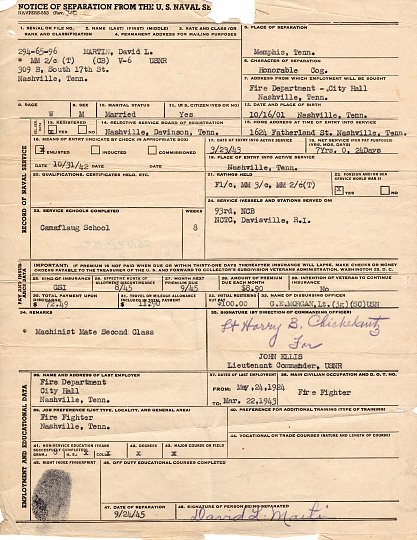 NOTICE OF SEPARATION FROM THE U.S. NAVAL
1. SERIAL OR FILE NO. 2. NAME (LAST) (FIRST) (MIDDLE) 3. RATE AND CLASS OR
RANK AND CLASSIFICATION 4. PERMANENT ADDRESS FOR MAILING PURPOSES
294-65-96 MARTIN, David L.
* MM 2/c (T) (CB) V-6 USNR
309 B, South 17th St.
Nashville, Tenn.
5. PLACE OF SEPARATION
Memphis, Tenn.
6. CHARACTER OF SEPARATION
Honorable Cog.
7. ADDRESS FROM WHICH EMPLOYMENT WILL BE SOUGHT
Fire Department - City Hall
Nashville, Tenn.
8. RACE 9. SEX 10. MARITAL STATUS 11. U.S. CITIZEN (YES OR NO)
W M Married Yes
12. DATE AND PLACE OF BIRTH
10/16/01 Nashville, Tenn.
13. REGISTERED YES NO
X
14. SELECTIVE SERVICE BOARD OF REGISTRATION
Nashville, Davinson, Tenn.
15. HOME ADDRESS AT TIME OF ENTRY INTO SERVICE
1624 Fatherland St. Nashville, Tenn.
RECORD OF NAVAL SERVICE
16. MEANS OF ENTRY (INDICATE BY CHECK IN APPROPRIATE BOX)
ENLISTED INDUCTED COMMISSIONED
DATE 10/31/42 DATE DATE
17. DATE OF ENTRY INTO ACTIVE SERVICE
9/23/43
18. NET SERVICE (FOR PAY PURPOSES)
(YRS. MOS. DAYS)
7Yrs. 0, 24Days
19. PLACE OF ENTRY INTO ACTIVE SERVICE
Nashville, Tenn.
20. QUALIFICATIONS, CERTIFICATES HELD, ETC.
21. RATINGS HELD
F1/c, MM 3/c, MM 2/c(T)
22. FOREIGN AND/OR SEA
SERVICE WORLD WAR II
YES NO
X
23. SERVICE SCHOOLS COMPLETED WEEKS
Camaflaug School 8
24. SERVICE (VESSELS AND STATIONS SERVED ON)
93rd, NCB
NCTC, Davisville, R.I.
IMPORTANT: IF PREMIUM IS NOT PAID WHEN DUE OR WITHIN THIRTY-ONE DAYS THEREAFTER INSURANCE WILL LAPSE. MAKE CHECKS OR MONEY
ORDERS PAYABLE TO THE TREASURER OF THE U.S. AND FORWARD TO COLLECTOR'S SUBDIVISION VETERANS ADMINISTRATION, WASHINGTON 25, D.C.
25. KIND OF INSURANCE
GSI
26. EFFECTIVE MONTH OF ALLOTMENT DISCONTINUANCE
8/45
27. MONTH NEXT PREMIUM DUE
9/45
28. AMOUNT OF PREMIUM DUE EACH MONTH
$8.90
29. INTENTION OF VETERAN TO CONTINUE INSURANCE
No
30. TOTAL PAYMENT UPON DISCHARGE
31. TRAVEL OR MILEAGE ALLOWANCE INCLUDED IN TOTAL PAYMENT
32. INITIAL MUSTERING OUT PAY
$100.00
33. NAME OF DISBURSING OFFICER
34. REMARKS
* Machinist Mate Second Class
35. SIGNATURE (BY DIRECTION OF COMMANDING OFFICER)
Lt Harry B.
For
JOHN ELLIS
Lieutenant Commander, USNR
EMPLOYMENT AND EDUCATIONAL DATA
36. NAME AND ADDRESS OF LAST EMPLOYER
Fire Department
City Hall
Nashville, Tenn.
37. DATES OF LAST EMPLOYMENT
FROM: May, 24, 1924
TO: Mar. 22, 1943
38. MAIN CIVILIAN OCCUPATION AND D.O.T. NO.
Fire Fighter
39. JOB PREFERENCE (LIST TYPE, LOCALITY, AND GENERAL AREA)
Fire Fighter
Nashville, Tenn.
40. PREFERENCE FOR ADDITIONAL TRAINING (TYPE OF TRAINING)
41. NON-SERVICE EDUCATION (YEARS SUCCESSFULLY COMPLETED)
42. DEGREES
43. MAJOR COURSE OR FIELD
44. VOCATIONAL OR TRADE COURSES (NATURE AND LENGTH OF COURSE)
45. RIGHT INDEX FINGERPRINT
46. OFF DUTY EDUCATIONAL COURSES COMPLETED
47. DATE OF SEPARATION
9/24/45
48. SIGNATURE OF PERSON BEING SEPARATED
David L Martin